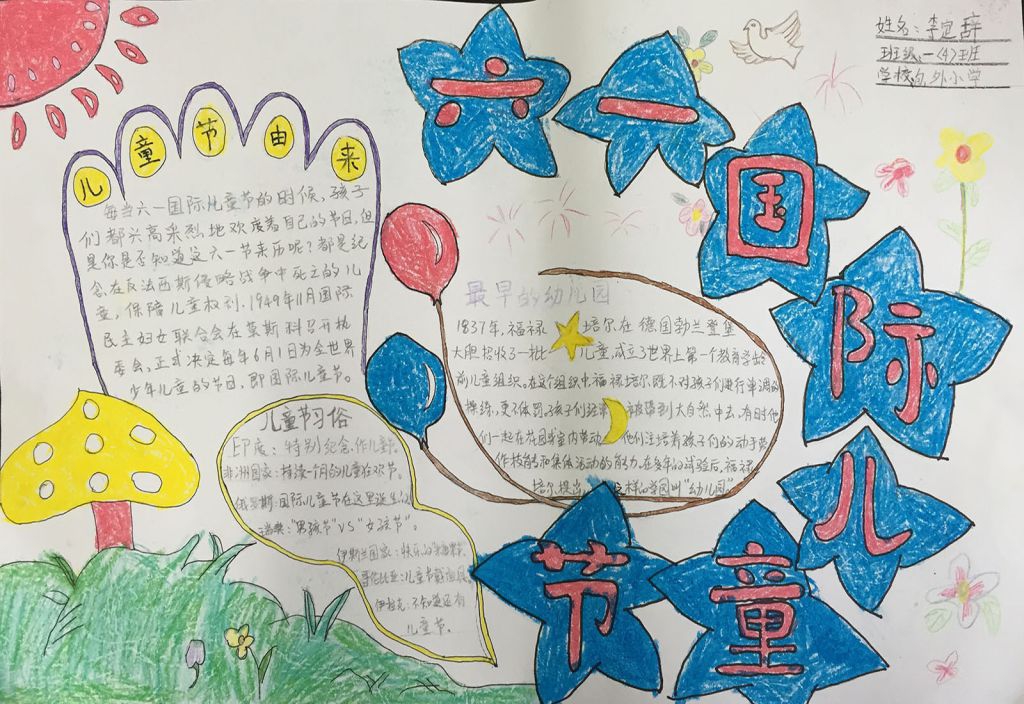 六一国际儿童节
姓名:李定辞
班级:一(4)班
学校:外小学
儿童节由来
每当六一国际儿童节的时候,孩子
们都兴高采烈地欢度着自己的节日,但
是你是否知道这六一节来历呢?都是纪
念在反法西斯侵略战争中死亡的儿
童,保障儿童权利.1949年11月国际
民主妇女联合会在莫斯科召开执
委会,正式决定每年6月1日为全世界
少年儿童的节日,即国际儿童节。
最早的幼儿园
1837年,福禄培尔在德国勃兰登堡
大胆招收了一批儿童,成立了世界上第一个教育学龄
前儿童组织。在这个组织中福禄培尔既不对孩子们进行单调的
操练,更不体罚,孩子们经常被带到大自然中去,有时他
们一起在花园或室内劳动,他们注培养孩子们的动手劳
作技能和集体活动的能力。在多年的试验后,福禄
培尔提出这样的学园叫“幼儿园”
儿童节习俗
印度:特别纪念作儿童
非洲国家:持续一个月的儿童狂欢节。
俄罗斯:国际儿童节在这里诞生
瑞典:“男孩节”VS“女孩节”。
伊斯兰国家:快乐的糖果节
哥伦比亚:儿童节戴面具
伊拉克:不知道还有
儿童节。